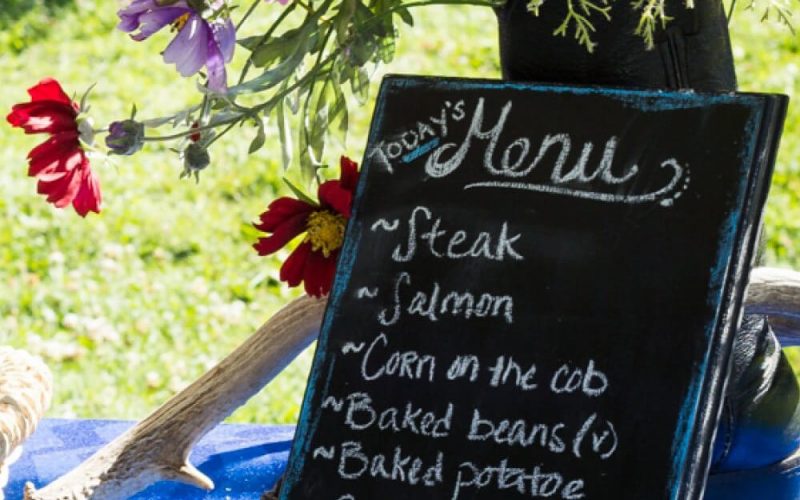 Today's Menu
~Steak
~Salmon
~Corn on the cob
~Baked beans (v)
~Baked potatoe